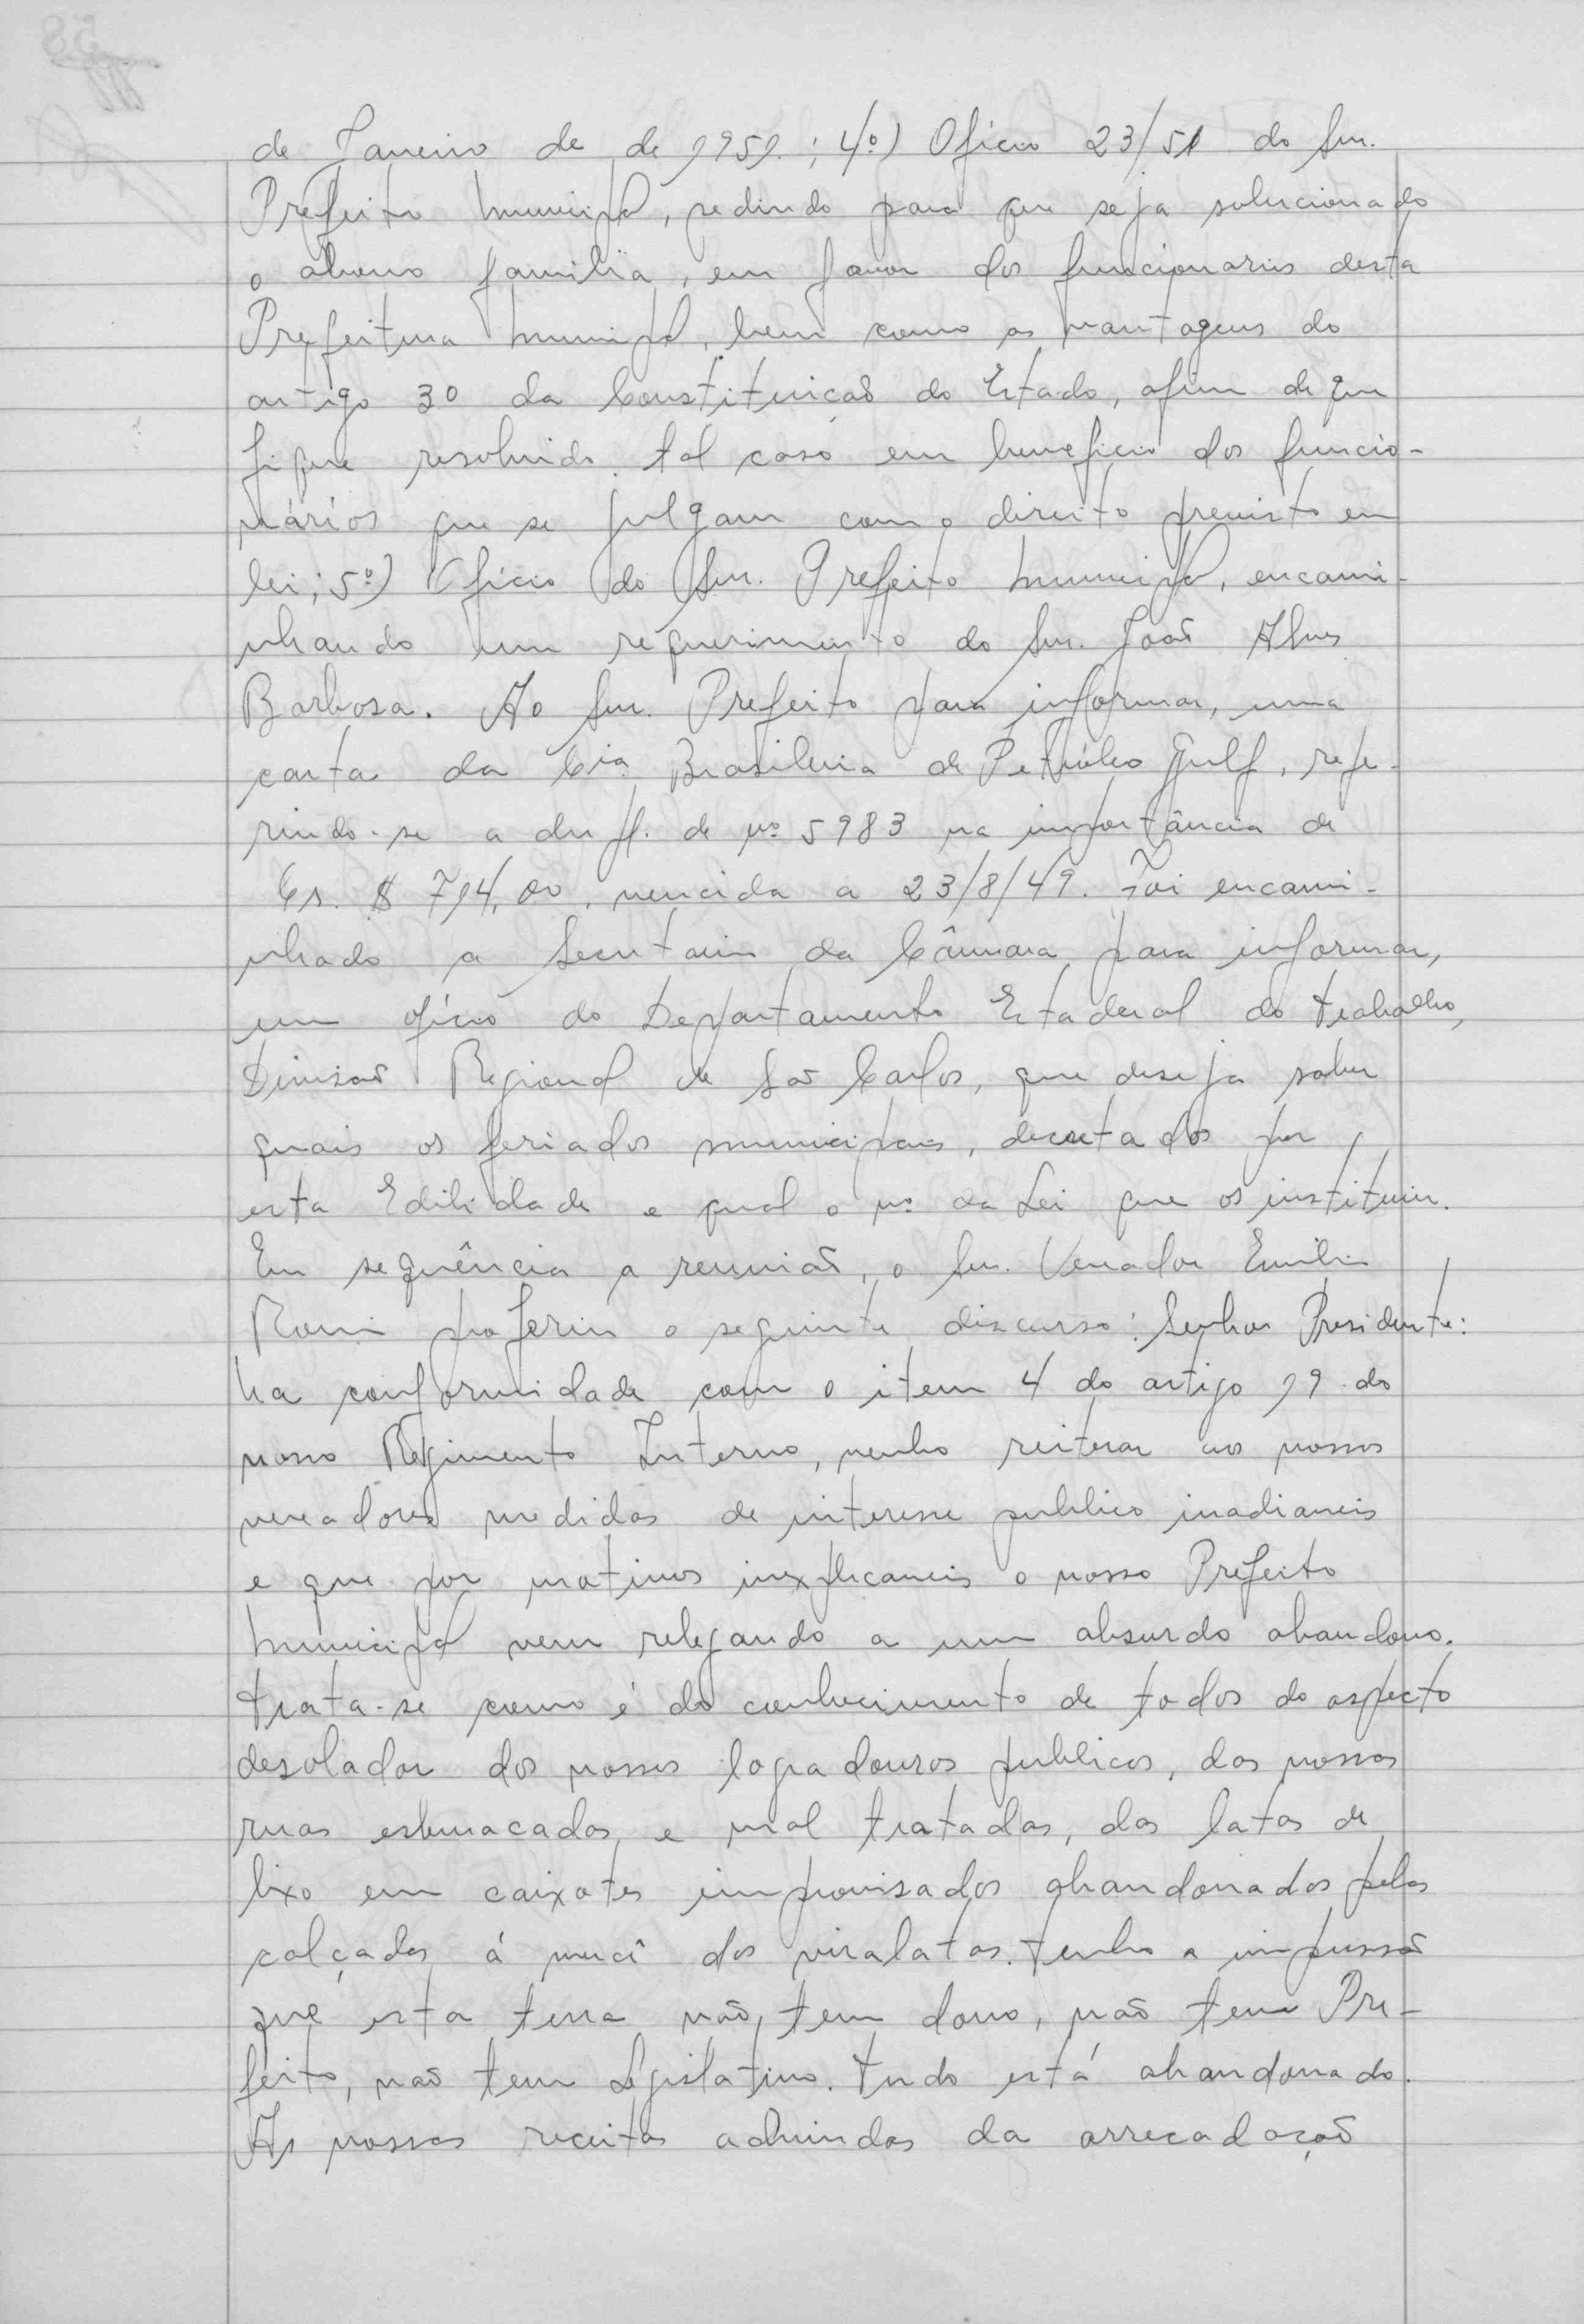 de Janeiro de de 1951.; 4º) Oficio 23/51 do Snr.
Prefeito Municipal, pedindo para que seja solucionado
o abono familia, em favor dos funcionarios desta
Prefeitura Municipal, bem como as vantagens do
artigo 30 da Constituicaõ do Estado, afim de que
fique resolvido tal caso em beneficio dos funcio-
nários que se julgam com o direito previsto em
lei; 5º) Oficio do Snr. Prefeito Municipal, encami-
nhando um requerimento do Snr. Joaõ Alves
Barbosa. Ao Snr. Prefeito para informar, uma
carta da Cia Brasileira de Petróleo Gulf, refe-
rindo-se a dupl. de nº 5983 na importância de
Cr. $ 714,00, vencida a 23/8/49. Foi encami-
nhado a Secretaria da Câmara para informar,
um ofício do Departamento Estadual do trabalho,
Divisaõ Regional de Saõ Carlos, que deseja saber
quais os feriados municipais, decretados por
esta Edilidade e qual o nº da Lei que os instituiu.
Em sequência a reuniaõ, o Snr. Vereador Emilio
proferiu o seguinte discurso: Senhor Presidente:
Na conformidade com o item 4 do artigo 19 do
nosso Regimento Interno, venho reiterar aos nossos
vereadores medidas de interesse publico inadiaveis
e que por motivos inexplicaveis o nosso Prefeito
Municipal vem relegando a um absurdo abandono.
Trata-se como é do conhecimento de todos do aspecto
desolador dos nossos logradouros publicos, das nossas
ruas esburacadas e mal tratadas, das latas de
lixo em caixotes improvisados abandonados pelas
calçadas á mercê dos viralatas. Tenho a impressaõ
que esta terra naõ tem dono, naõ tem Pre-
feito, naõ tem Legislativo. Tudo está abandonado.
As nossas receitas advindas da arrecadaçaõ